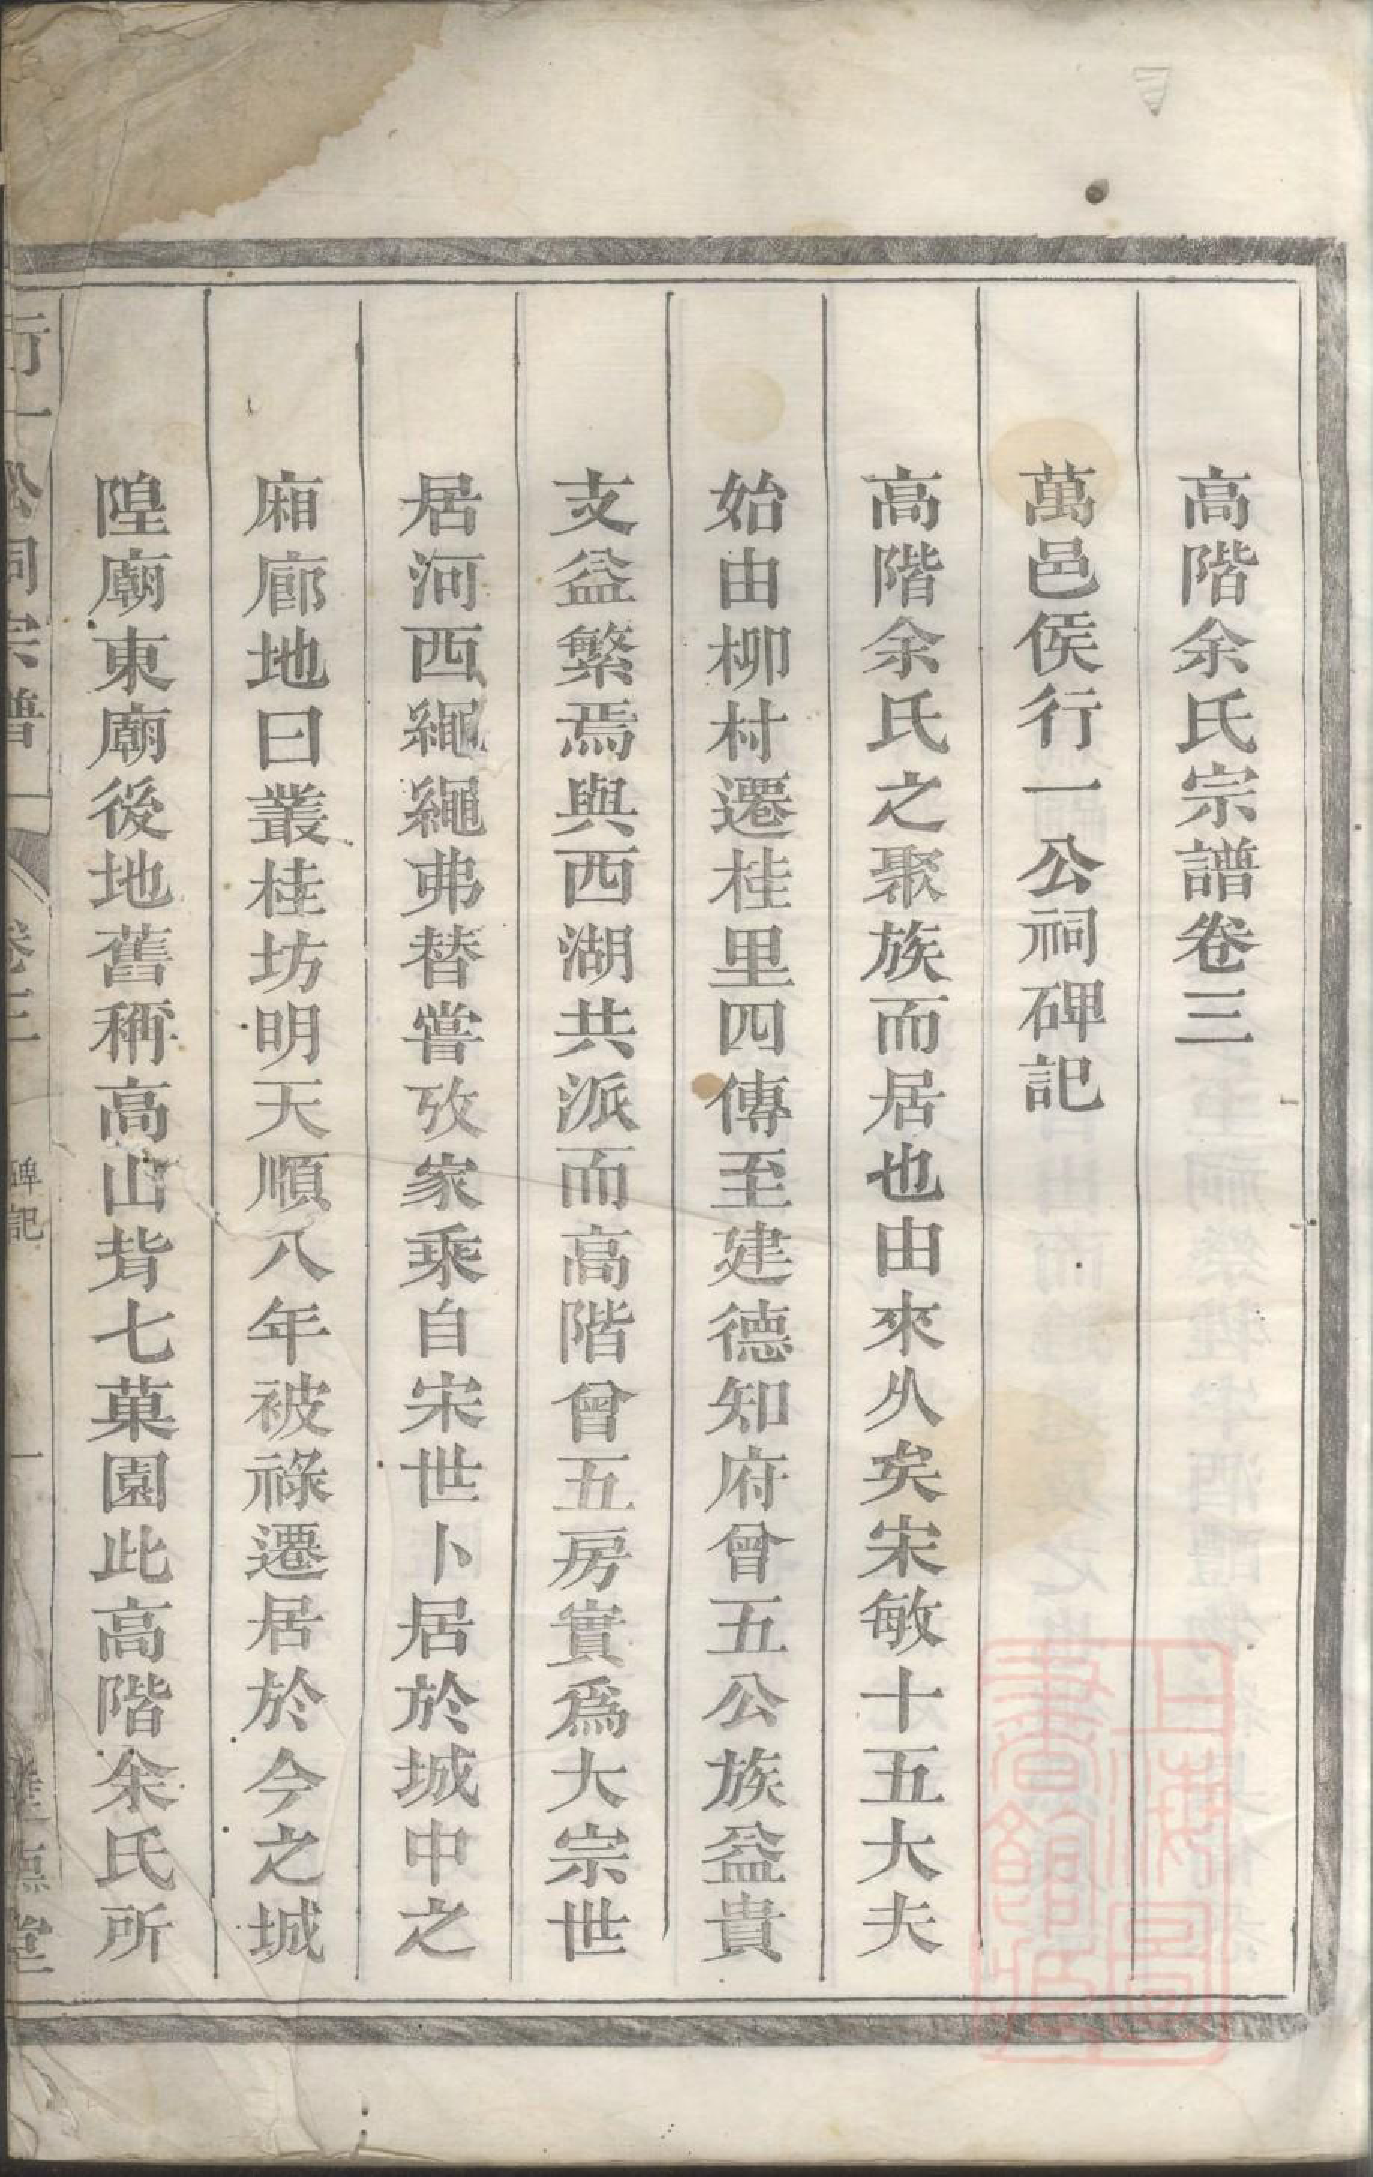 高階余氏宗譜卷三
萬邑侯行一公祠碑記
高階余氏之聚族而居也由來乆矣宋敏十五大夫
始由柳村遷桂里四傳至建德知府曾五公族益貴
支益繁焉與西湖共派而高階曾五房實爲大宗世
居河西繩繩弗替嘗攷家乘自宋世卜居於城中之
廂廊地曰叢桂坊明天順八年被祿遷居於今之城
隍廟東廟後地舊稱高山背七菓園此高階余氏所
行一公祠宗譜
卷三
碑記
一
堂
上海圖書館藏